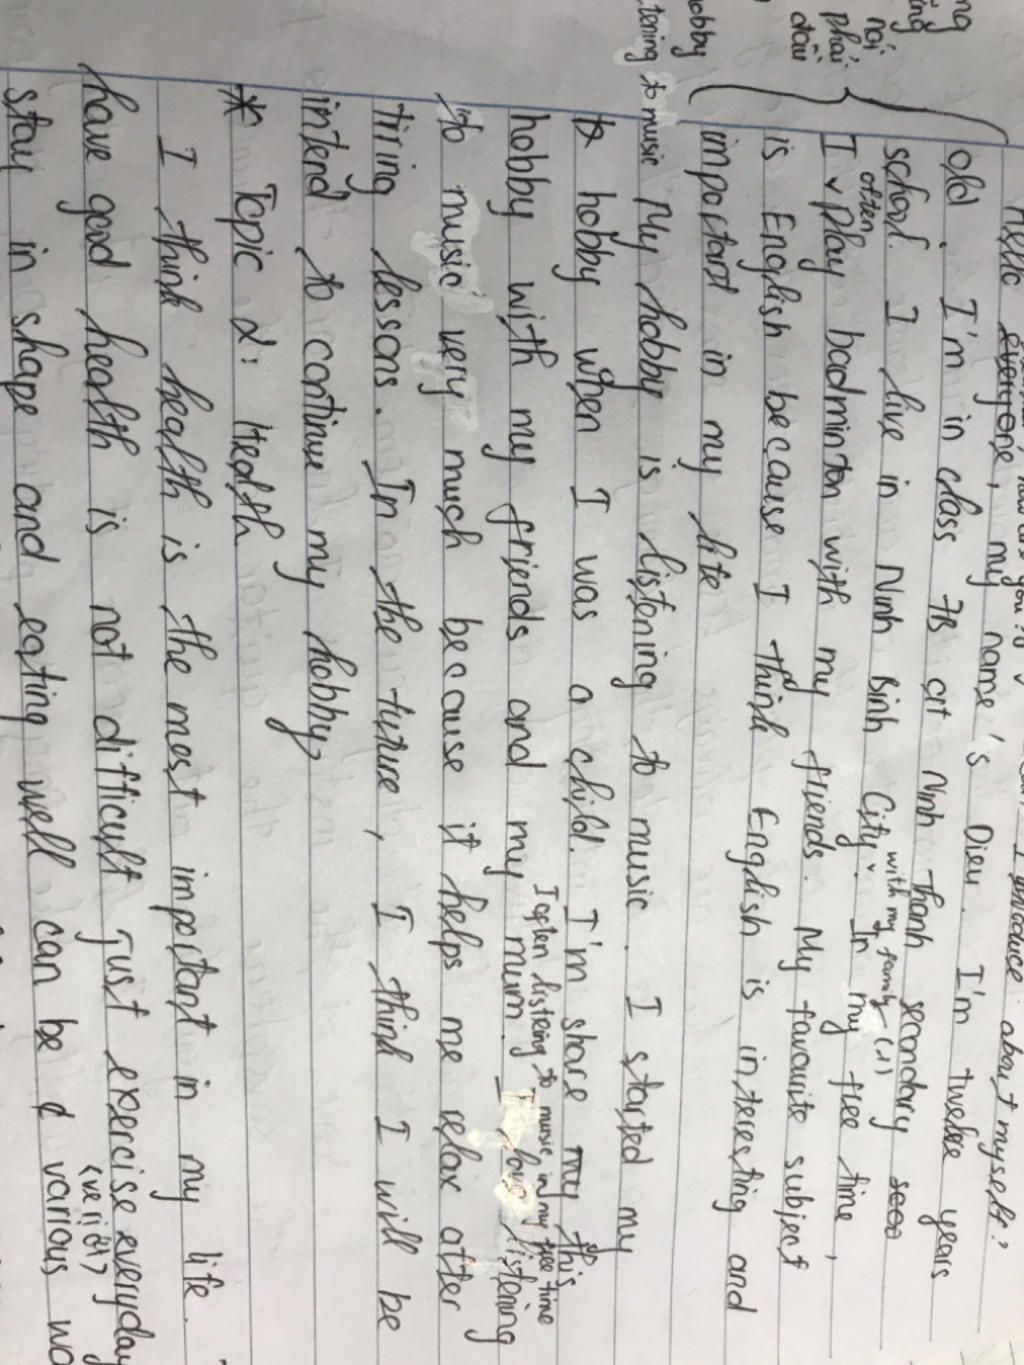 how are you?
about myself?
Hello everyone, my name's Dieu. I'm twelve years
old. I'm in class 7B at Ninh thanh secondary
school. I live in Ninh Binh City. with my family (1) In my free time,
I often play badminton with my friends. My favourite subject
is English because I think English is interesting and
important in my life
hobby
listening to music
My hobby is listening to music. I started my
hobby when I was a child. I'm share my this
hobby with my friends and my mum. I love listening
I often listening to music in my free time
to music very much because it helps me relax after
tiring lessons. In the future, I think I will be
intend to continue my hobby
* Topic 2: Health
I think health is the most important in my life.
have good health is not difficult just exercise everyday
stay in shape and eating well can be various
nói
phải
đâu